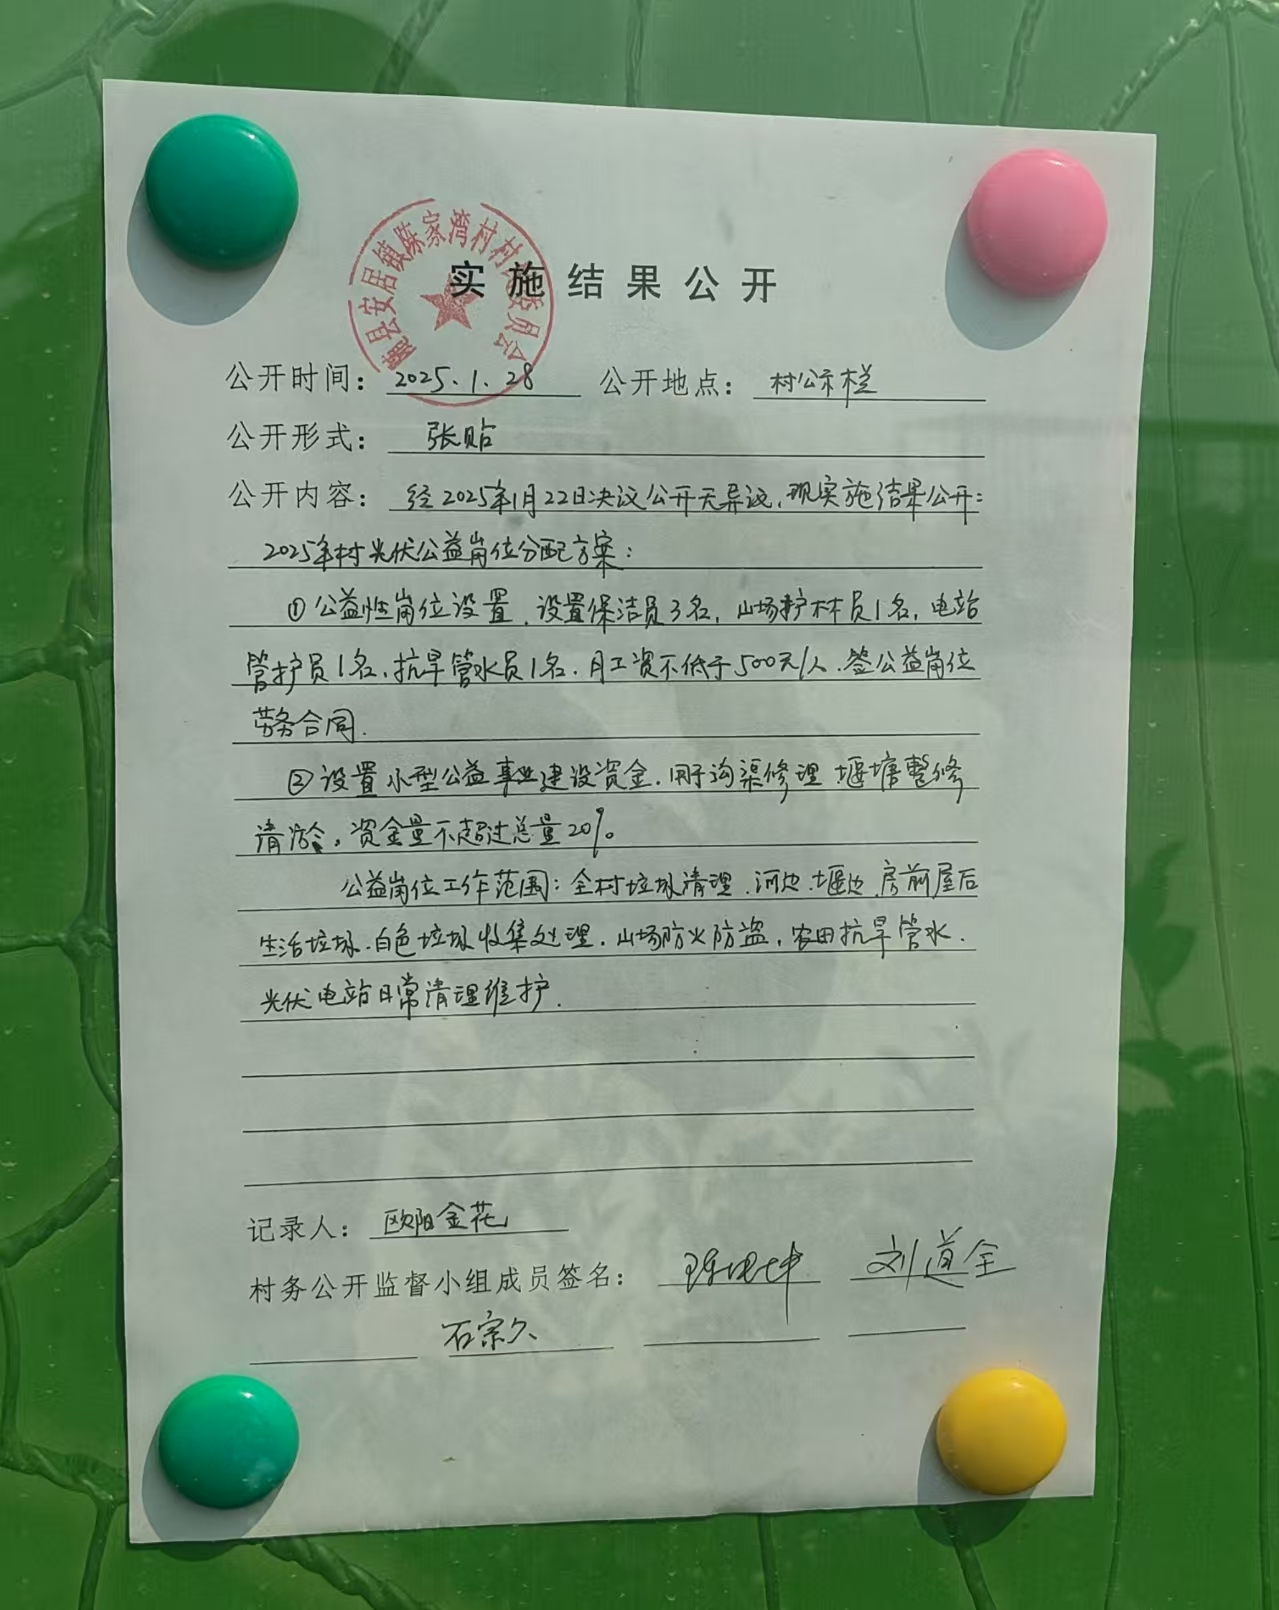 随县安居镇陈家湾村村民委员会
实施结果公开
公开时间: 2025.1.28 公开地点: 村公示栏
公开形式: 张贴
公开内容: 经2025年1月22日决议公开无异议,现实施结果公开:
2025年村光伏公益岗位分配方案:
①公益性岗位设置,设置保洁员3名,山场护林员1名,电站
管护员1名,抗旱管水员1名.月工资不低于500元/人.签公益岗位
劳务合同.
②设置小型公益事业建设资金.用于沟渠修理 堰塘整修
清淤,资金量不超过总量20%。
公益岗位工作范围:全村垃圾清理.河边.堰边.房前屋后
生活垃圾.白色垃圾收集处理.山场防火防盗,农田抗旱管水.
光伏电站日常清理维护.
记录人: 欧阳金花
村务公开监督小组成员签名: 刘道全
石宗久